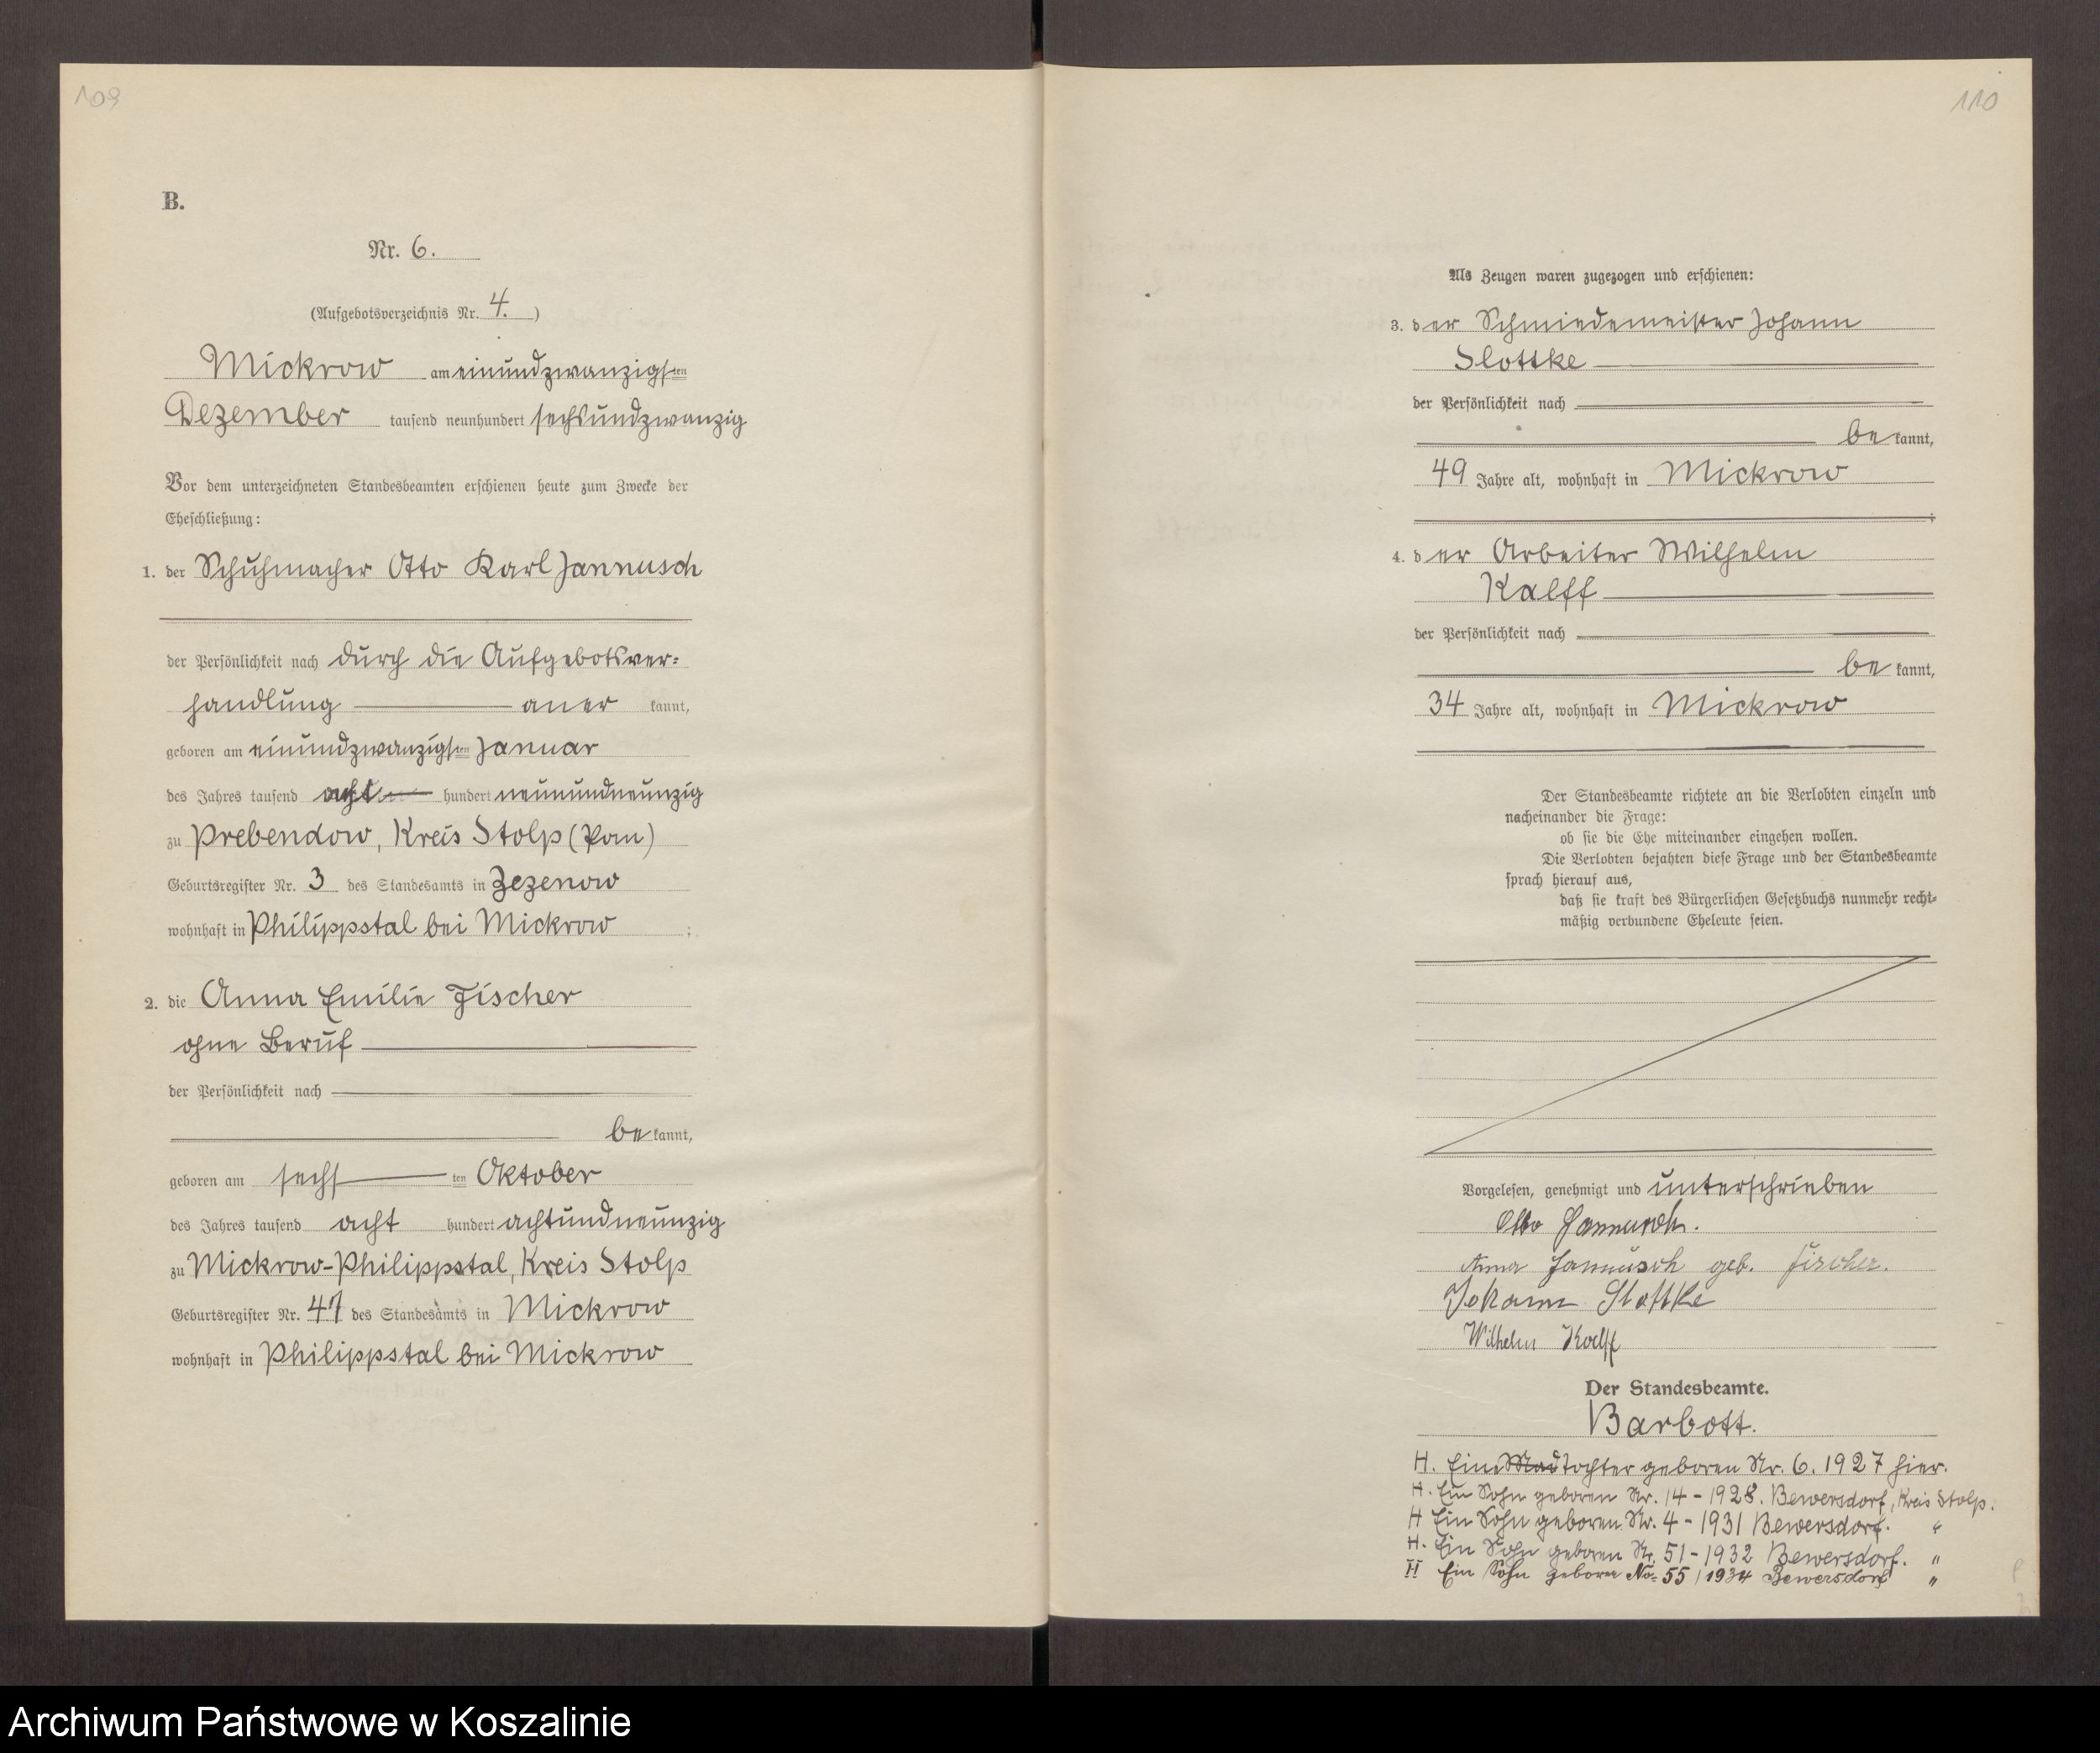 109
B.
Nr. 6.
(Aufgebotsverzeichnis Nr. 4. )
Mickrow am einundzwanzigsten
Dezember tausend neunhundert sechsundzwanzig
Vor dem unterzeichneten Standesbeamten erschienen heute zum Zwecke der
Eheschließung:
1. der Schuhmacher Otto Karl Jannusch
der Persönlichkeit nach durch die Aufgebotsver=
handlung aner kannt,
geboren am einundzwanzigsten Januar
des Jahres tausend acht hundert neunundneunzig
zu Prebendow, Kreis Stolp (Pom)
Geburtsregister Nr. 3 des Standesamts in Zezenow
wohnhaft in Philippstal bei Mickrow ;
2. die Anna Emilie Fischer
ohne Beruf
der Persönlichkeit nach
be kannt,
geboren am sechsten Oktober
des Jahres tausend acht hundert achtundneunzig
zu Mickrow-Philippstal, Kreis Stolp
Geburtsregister Nr. 47 des Standesamts in Mickrow
wohnhaft in Philippstal bei Mickrow
110
Als Zeugen waren zugezogen und erschienen:
3. der Schmiedemeister Johann
Slottke
der Persönlichkeit nach
be kannt,
49 Jahre alt, wohnhaft in Mickrow
;
4. der Arbeiter Wilhelm
Kalff
der Persönlichkeit nach
be kannt,
34 Jahre alt, wohnhaft in Mickrow
Der Standesbeamte richtete an die Verlobten einzeln und
nacheinander die Frage:
ob sie die Ehe miteinander eingehen wollen.
Die Verlobten bejahten diese Frage und der Standesbeamte
sprach hierauf aus,
daß sie kraft des Bürgerlichen Gesetzbuchs nunmehr recht-
mäßig verbundene Eheleute seien.
Vorgelesen, genehmigt und unterschrieben
Otto Jannusch.
Anna Jannusch geb. Fischer.
Johann Slottke
Wilhelm Kalff
Der Standesbeamte.
Barbott.
H. Eine Mäd Tochter geboren Nr. 6. 1927 hier.
H. Ein Sohn geboren Nr. 14 - 1928. Bewersdorf, Kreis Stolp.
H Ein Sohn geboren Nr. 4 - 1931 Bewersdorf. "
H. Ein Sohn geboren Nr. 51 - 1932 Bewersdorf. "
H Ein Sohn geboren No. 55 / 1934 Bewersdorf "
Archiwum Państwowe w Koszalinie